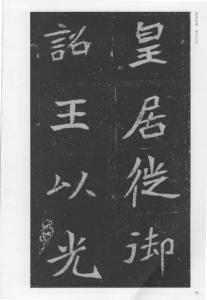 皇居徙御
詔王以光